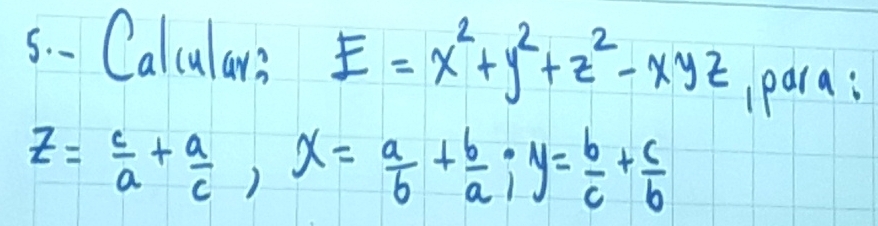 5.- Calcular: E = x² + y² + z² - xyz, para:
z = c/a + a/c, x = a/b + b/a; y = b/c + c/b